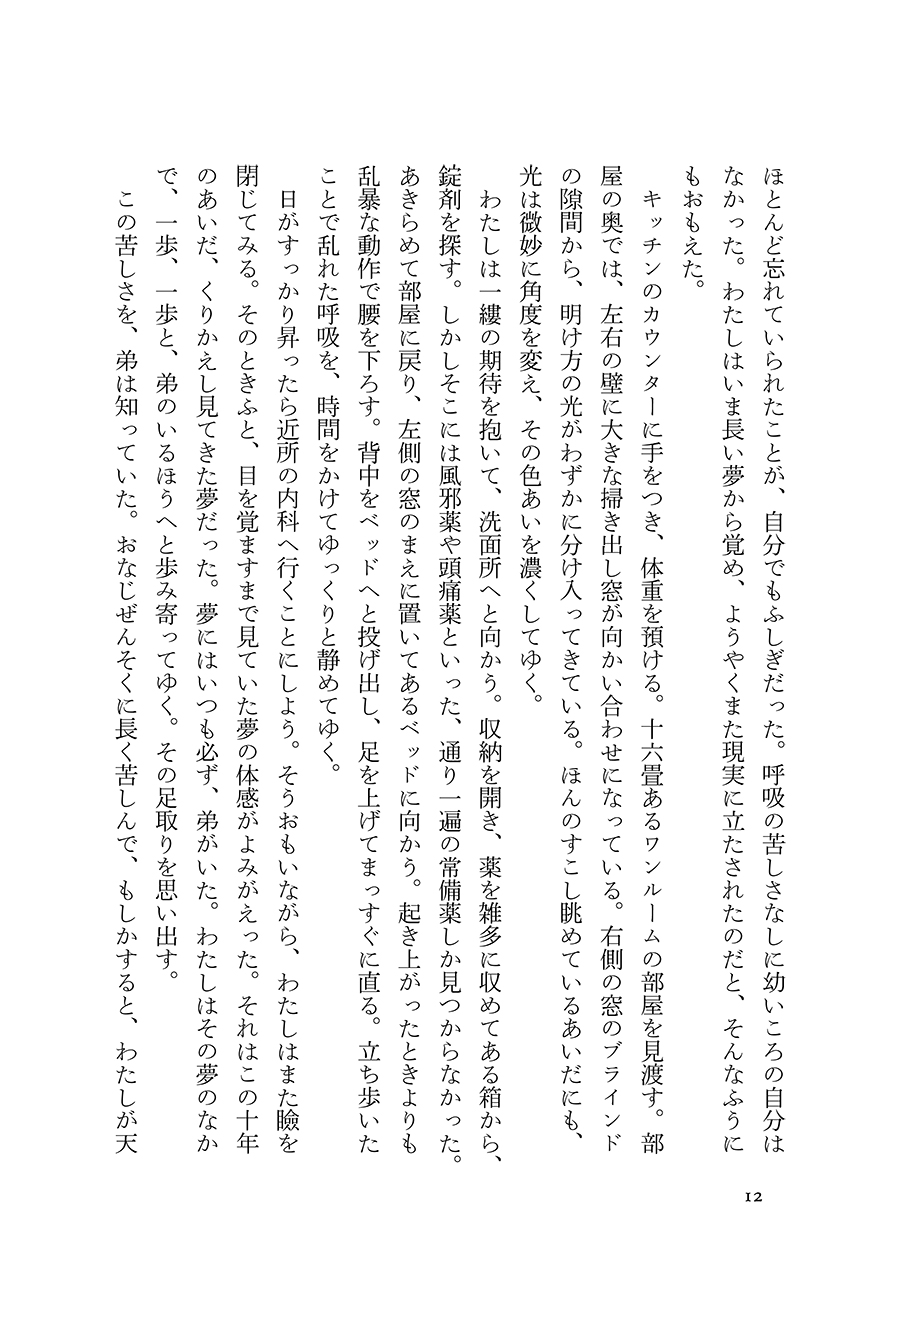 ほとんど忘れていられたことが、自分でもふしぎだった。呼吸の苦しさなしに幼いころの自分は
なかった。わたしはいま長い夢から覚め、ようやくまた現実に立たされたのだと、そんなふうに
もおもえた。
キッチンのカウンターに手をつき、体重を預ける。十六畳あるワンルームの部屋を見渡す。部
屋の奥では、左右の壁に大きな掃き出し窓が向かい合わせになっている。右側の窓のブラインド
の隙間から、明け方の光がわずかに分け入ってきている。ほんのすこし眺めているあいだにも、
光は微妙に角度を変え、その色あいを濃くしてゆく。
わたしは一縷の期待を抱いて、洗面所へと向かう。収納を開き、薬を雑多に収めてある箱から、
錠剤を探す。しかしそこには風邪薬や頭痛薬といった、通り一遍の常備薬しか見つからなかった。
あきらめて部屋に戻り、左側の窓のまえに置いてあるベッドに向かう。起き上がったときよりも
乱暴な動作で腰を下ろす。背中をベッドへと投げ出し、足を上げてまっすぐに直る。立ち歩いた
ことで乱れた呼吸を、時間をかけてゆっくりと静めてゆく。
日がすっかり昇ったら近所の内科へ行くことにしよう。そうおもいながら、わたしはまた瞼を
閉じてみる。そのときふと、目を覚ますまで見ていた夢の体感がよみがえった。それはこの十年
のあいだ、くりかえし見てきた夢だった。夢にはいつも必ず、弟がいた。わたしはその夢のなか
で、一歩、一歩と、弟のいるほうへと歩み寄ってゆく。その足取りを思い出す。
この苦しさを、弟は知っていた。おなじぜんそくに長く苦しんで、もしかすると、わたしが天
12